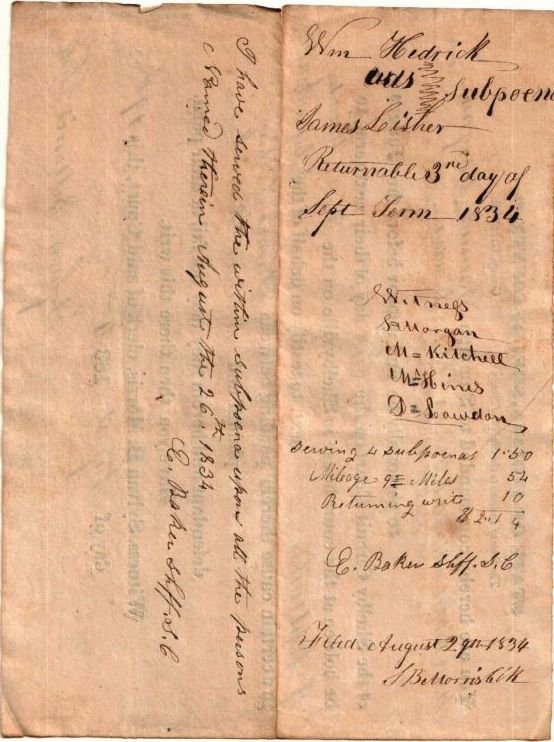 I have served the within subpoena upon all the persons
Named therein August the 26th 1834
E. Baker Shff. S. C
Wm Hedrick
vs Subpoena
James Lisher
Returnable 3rd day of
Sept Term 1834
Witness
S Morgan
M = Kitchell
Mc Hines
D = Lowdon
Serving 4 subpoenas 1.50
Mileage 9 Miles 54
Returning writ 10
$ 2.14
E. Baker Shff. S. C
Filed August 29th 1834
S B Morris Clk